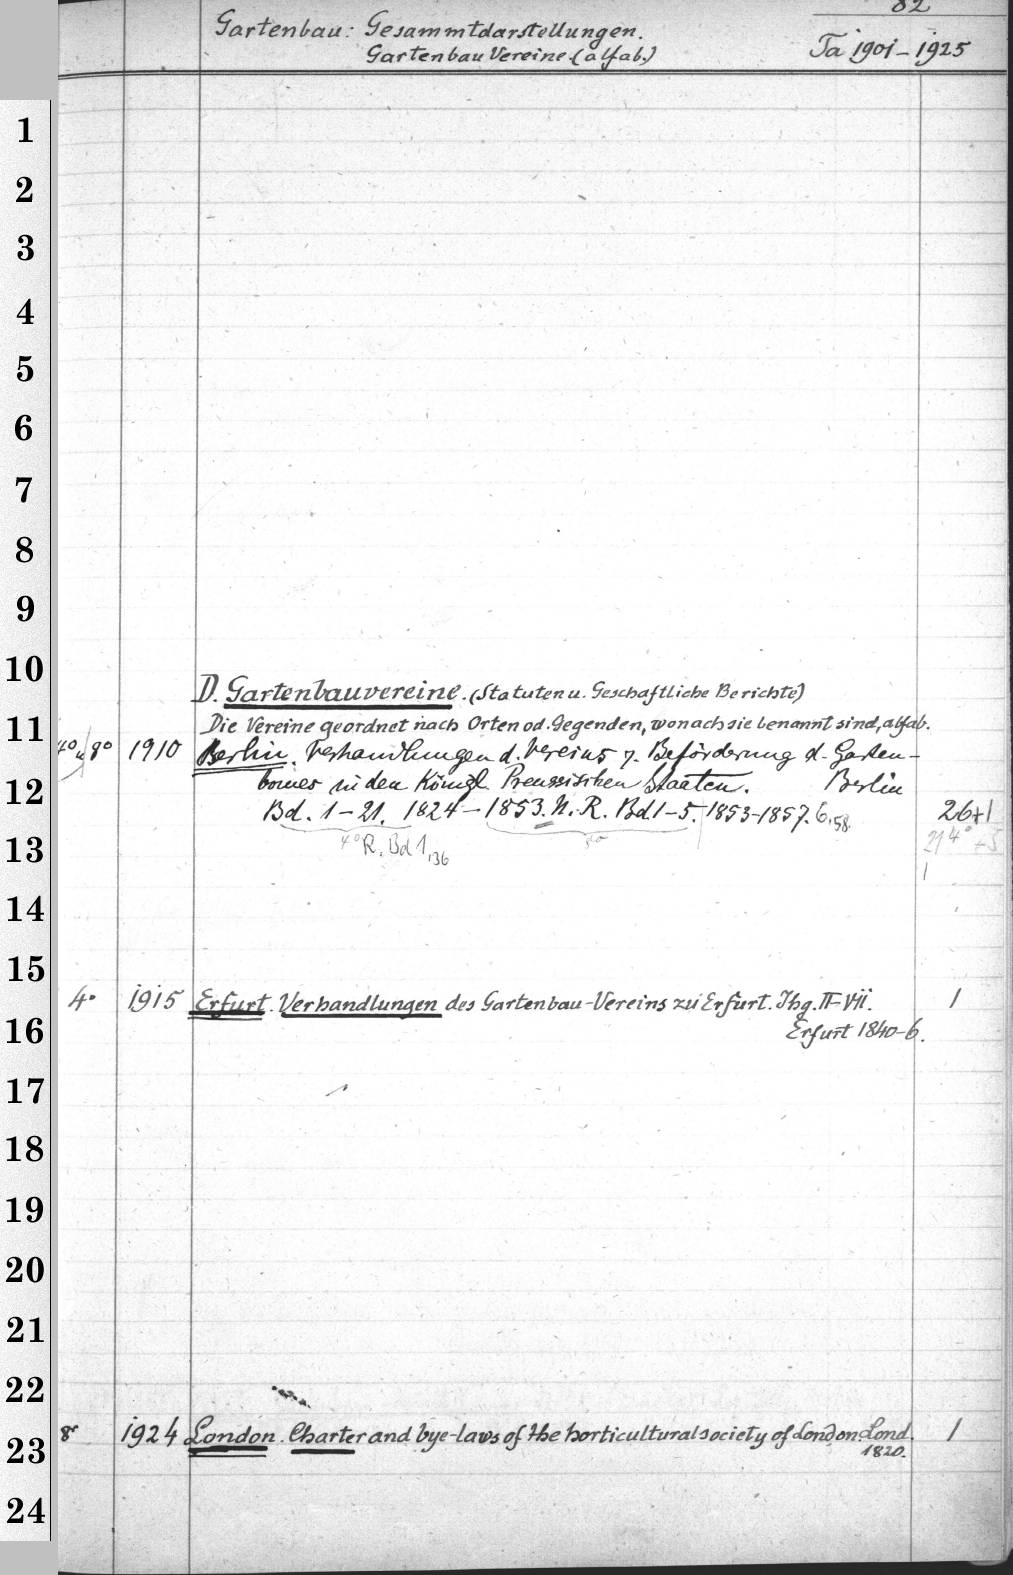 82
Gartenbau: Gesammtdarstellungen. Ta 1901–1925
Gartenbau Vereine. (alfab.)
1
2
3
4
5
6
7
8
9
10
D. Gartenbauvereine. (Statuten u. Geschaftliche Berichte)
11
Die Vereine geordnet nach Orten od. Gegenden, wonach sie benannt sind, alfab.
4° u 8° 1910 Berlin. Verhandlungen d. Vereins z. Beförderung d. Garten-
12
baues in den Königl. Preussischen Staaten. Berlin
Bd. 1–21. 1824–1853. N. R. Bd 1–5. 1853–1857. 6,58. 26+1
13
4° R. Bd 1,36 21 4° +5
1
14
15
4° 1915 Erfurt. Verhandlungen des Gartenbau-Vereins zu Erfurt. Jhg. II–VII. 1
16
Erfurt 1840–6.
17
18
19
20
21
22
8° 1924 London. Charter and bye-laws of the horticultural society of London. Lond. 1
23
1820.
24